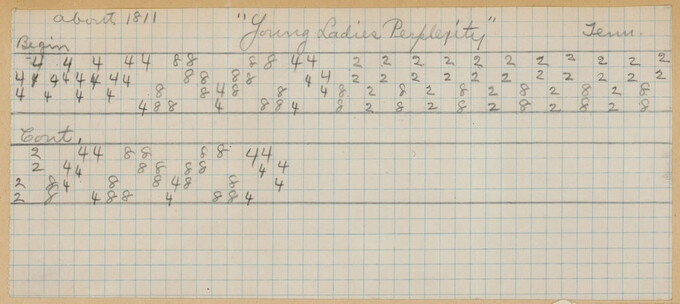 about 1811 "Young Ladies Perplexity" Tenn.
Begin
4 4 4 44 88 88 44 2 2 2 2 2 2 2 2 2 2 2
44 44444 44 88 88 44 2 2 2 2 2 2 2 2 2 2 2
4 4 4 4 8 848 8 48 2 8 2 8 2 8 2 8 2 8
488 4 884 8 2 8 2 8 2 8 2 8 2 8
Cont.
2 44 88 88 44
2 44 88 88 44
2 84 8 848 8 4
2 8 488 4 884